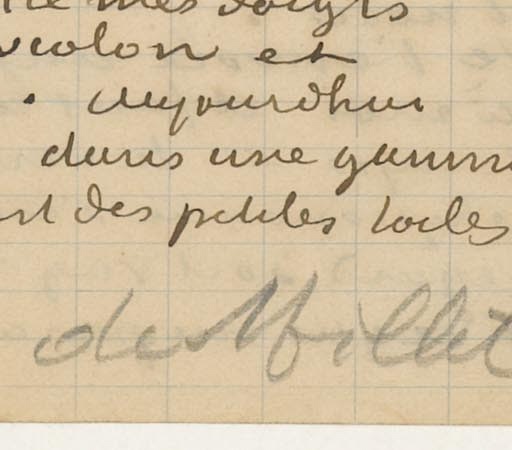 de mes doigts
violon et
. Aujourdhui
dans une gamme
est des petites toiles
de Millet